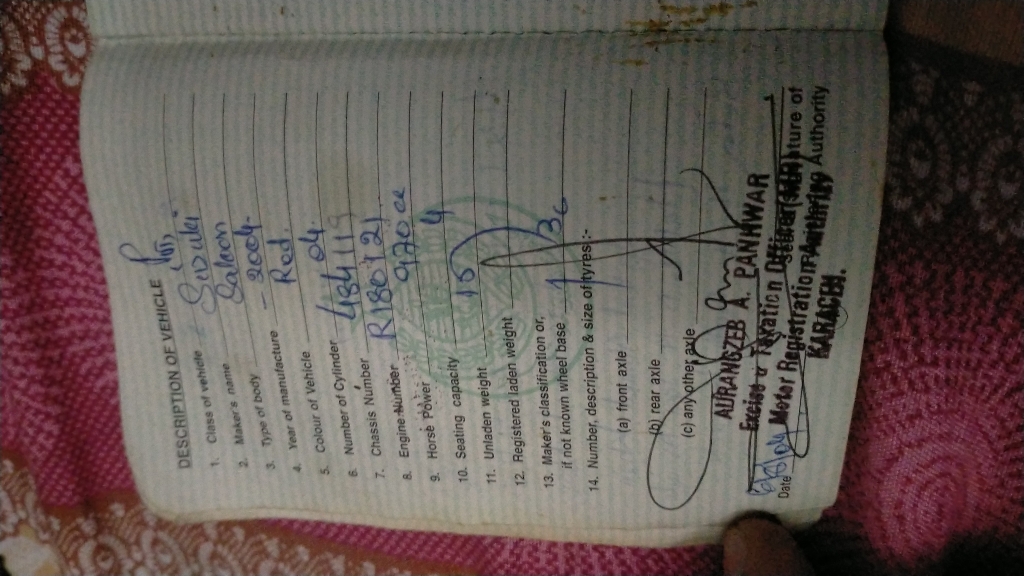 DESCRIPTION OF VEHICLE
1. Class of vehicle
2. Maker's name Suzuki
3. Type of body Saloon
4. Year of manufacture – 2004-
5. Colour of Vehicle Red
6. Number of Cylinder 04
7. Chassis Number 484119
8. Engine Number R180421
9. Horse Power 970 cc
10. Seating capacity 4
11. Unladen weight 15
12. Registered laden weight
13. Maker's classification or,
if not known wheel base
14. Number, description & size of tyres :-
(a) front axle
(b) rear axle
(c) any other axle
AURANGZEB A. PANHWAR
Excise & Taxation Officer
Motor Registration Authority
KARACHI.
Date
Signature of
Registering Authority